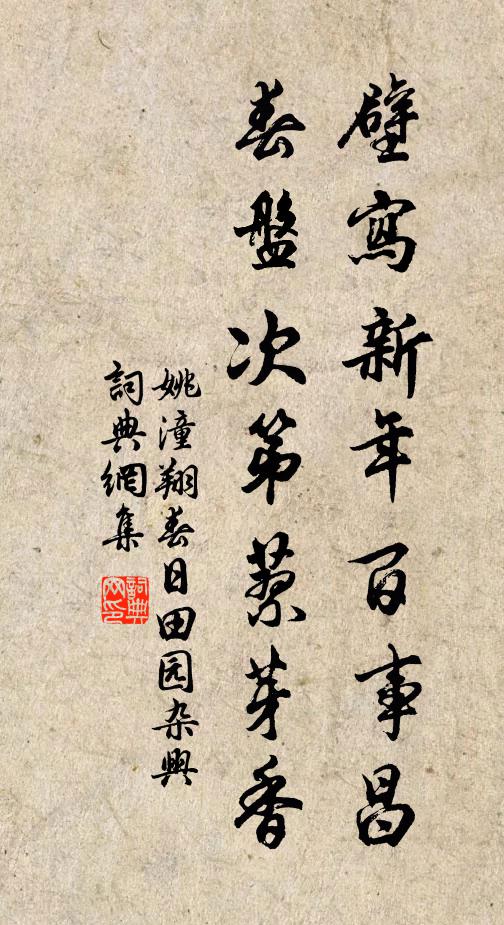 壁寫新年百事昌
春盤次第蔡芽香
姚潼翔春日田园杂興
詞典網集
詞典